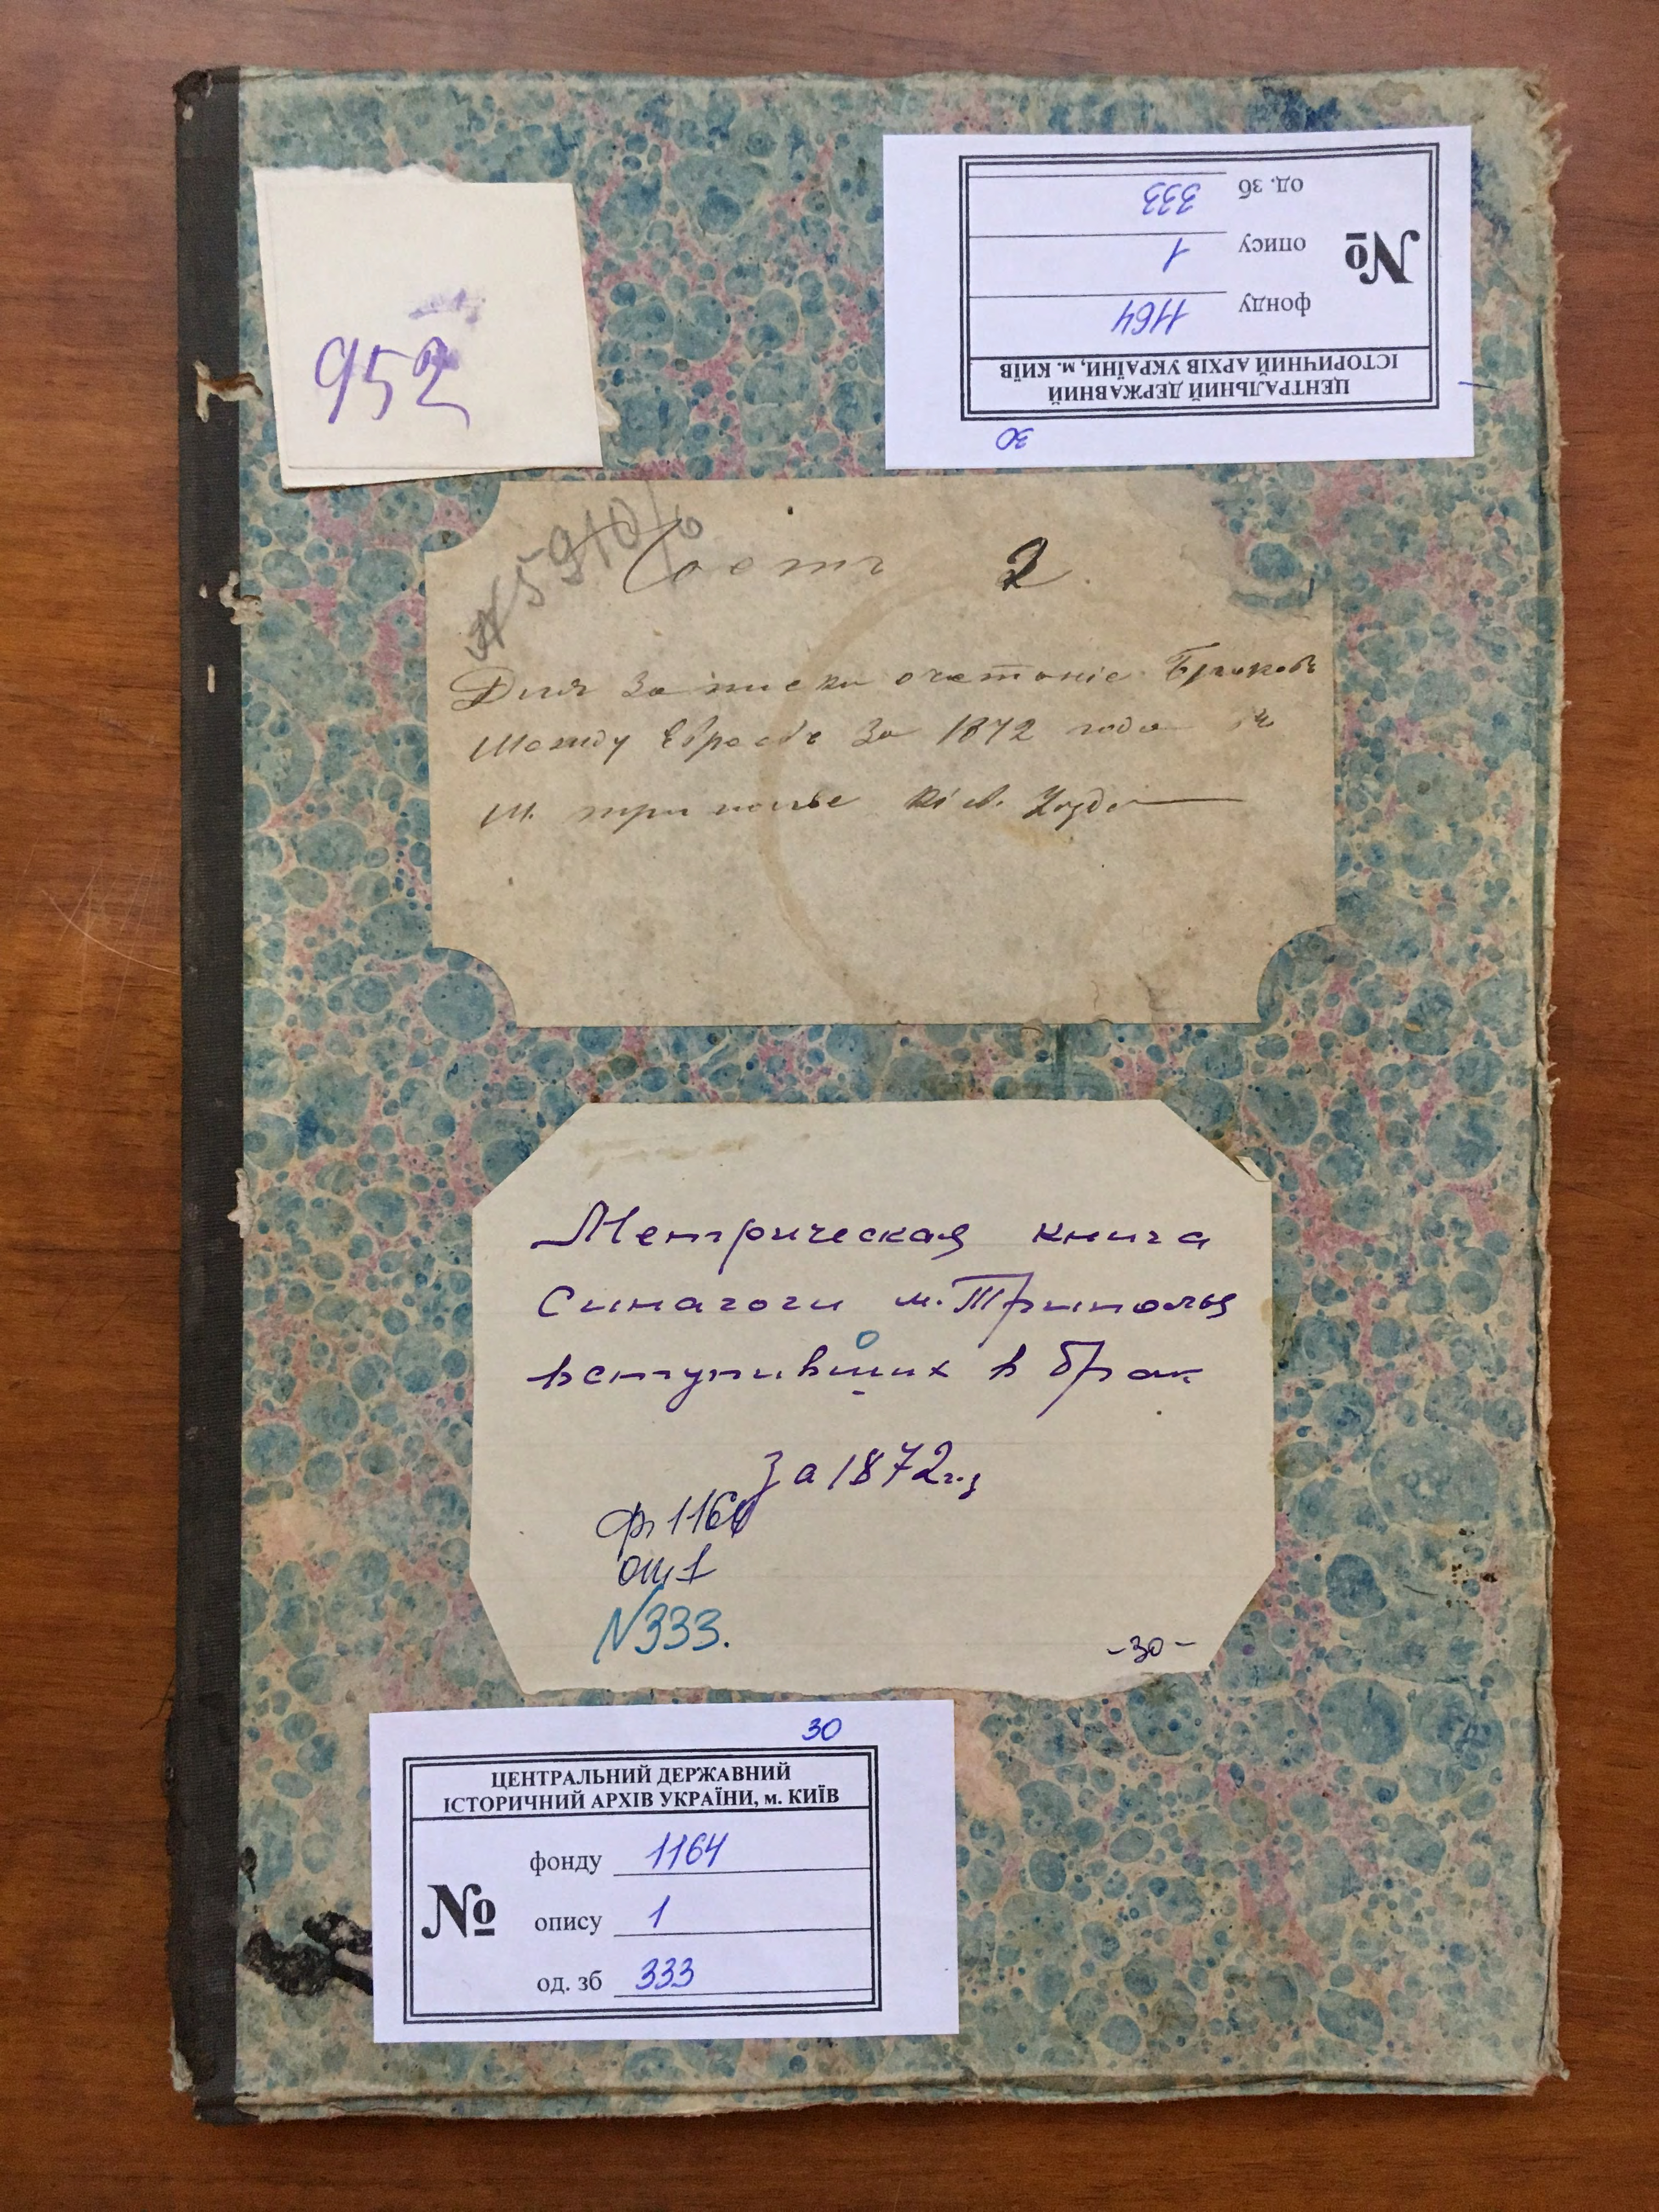 952
30
ЦЕНТРАЛЬНИЙ ДЕРЖАВНИЙ
ІСТОРИЧНИЙ АРХІВ УКРАЇНИ, м. КИЇВ
№
фонду 1164
опису 1
од. зб 333
2
Для записки
Между за 1872 года
м. триполье Кіев.
Метрическая книга
Синагоги м. Триполья
вступивших в брак
о
за 1872 г.
ф. 1164
оп. 1
N333.
-30-
30
ЦЕНТРАЛЬНИЙ ДЕРЖАВНИЙ
ІСТОРИЧНИЙ АРХІВ УКРАЇНИ, м. КИЇВ
№
фонду 1164
опису 1
од. зб 333